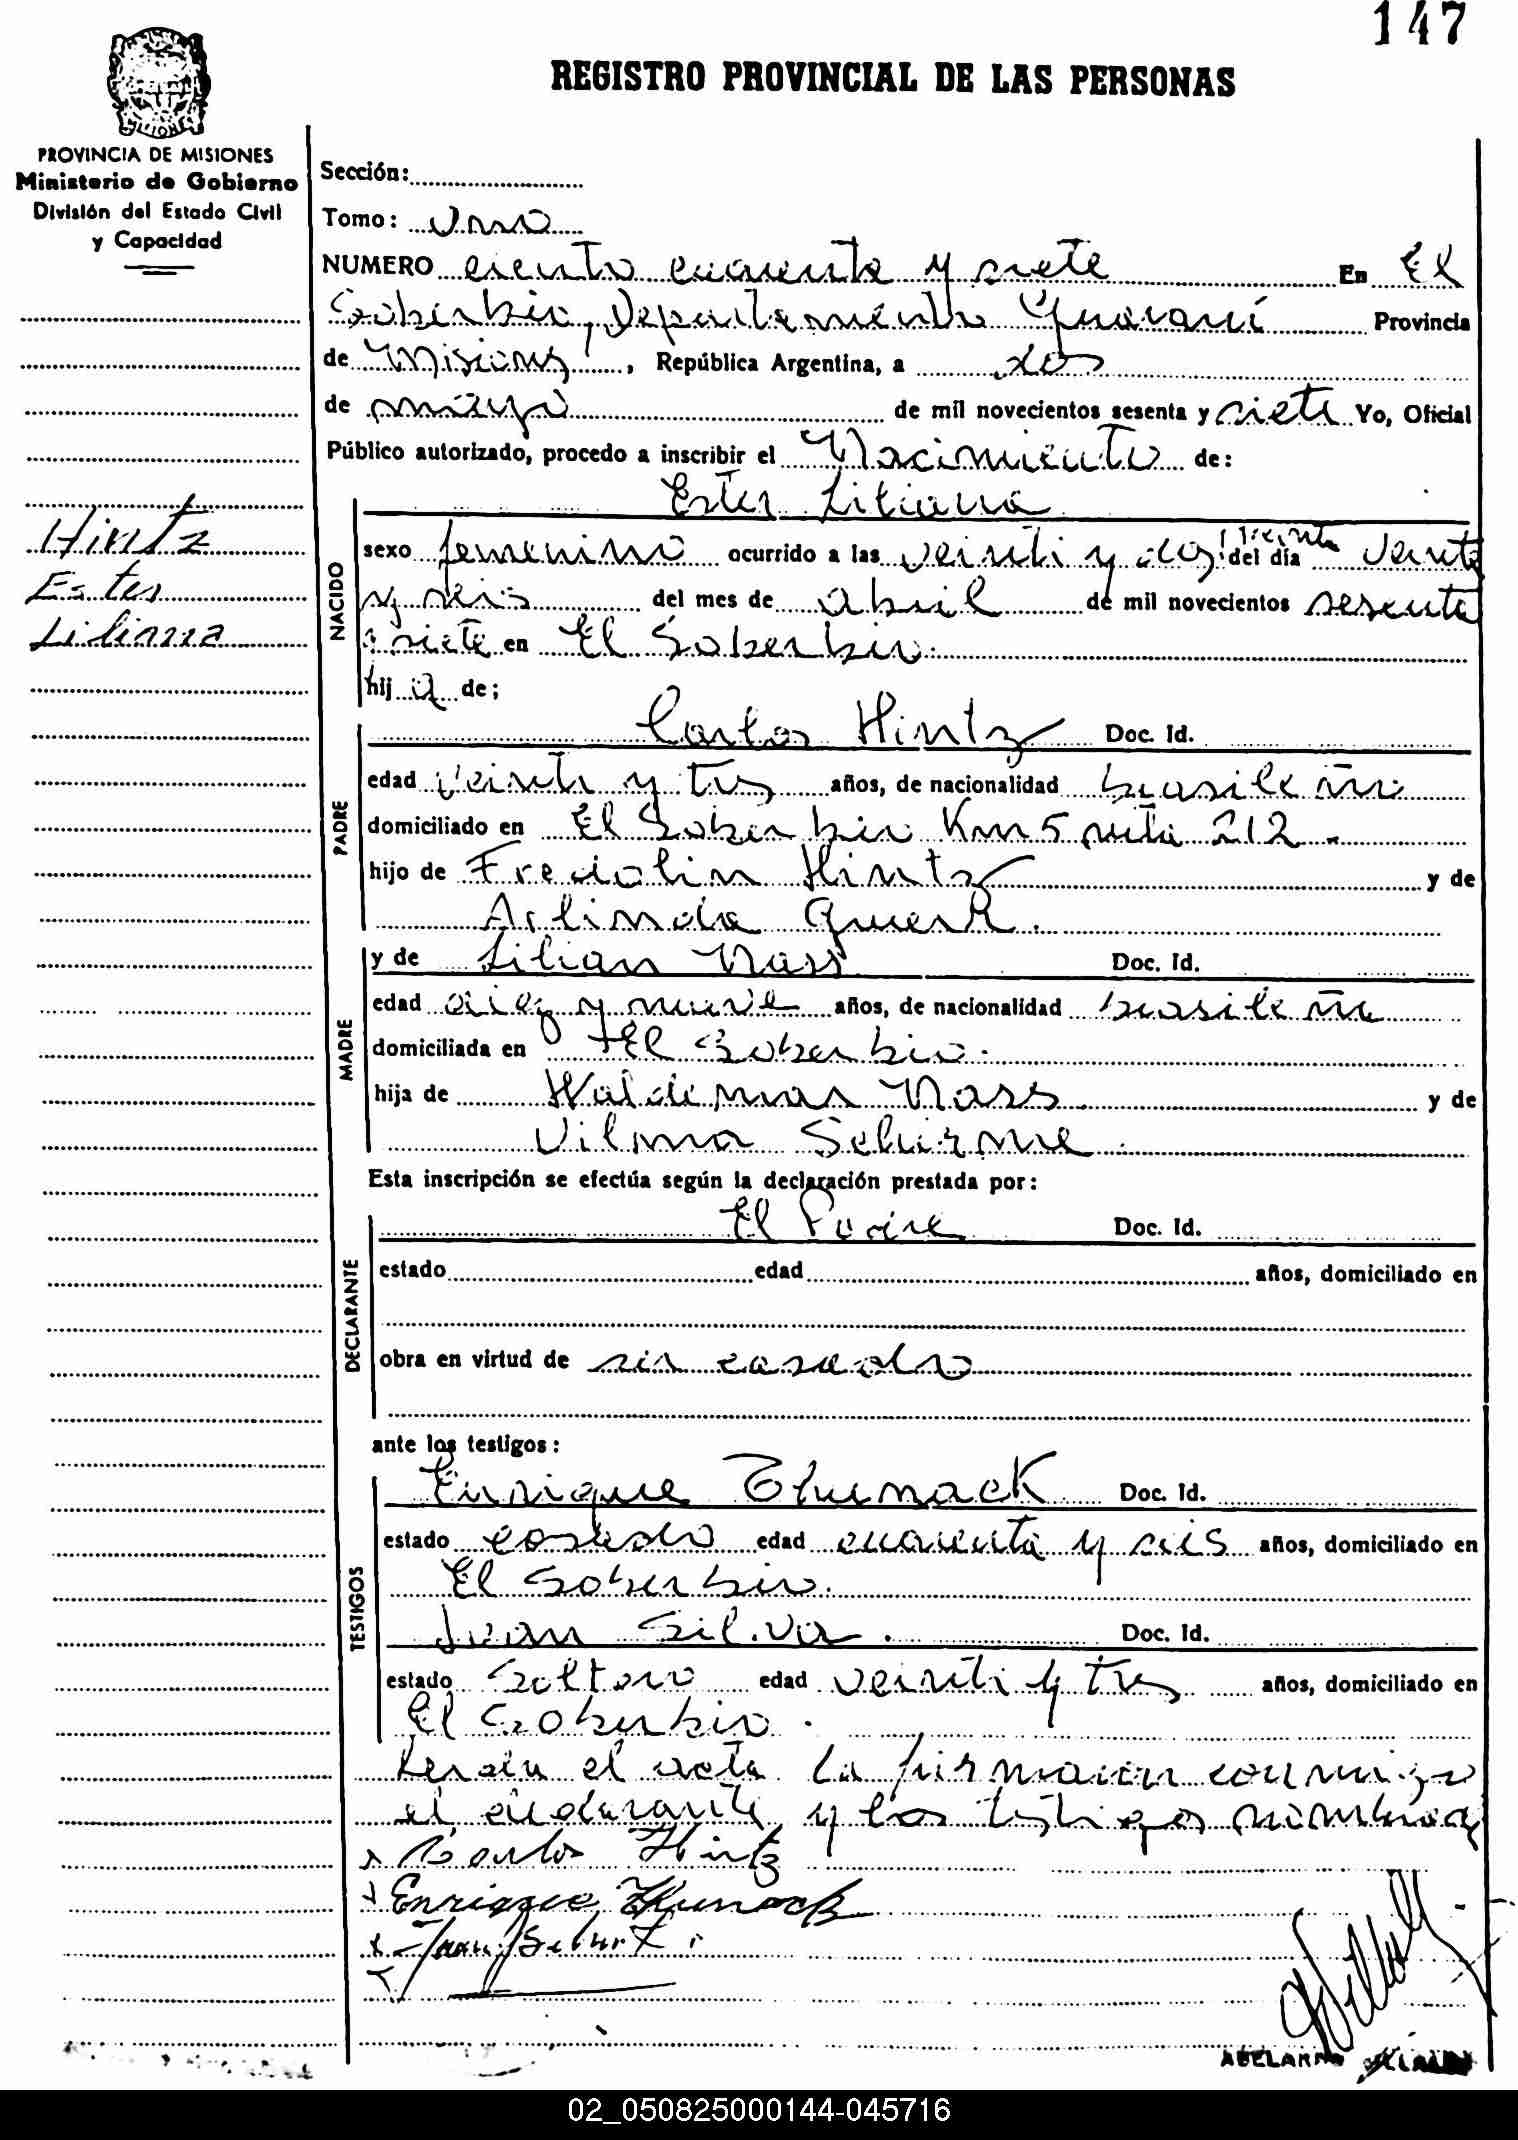 147
REGISTRO PROVINCIAL DE LAS PERSONAS
MISIONES
PROVINCIA DE MISIONES
Ministerio de Gobierno
División del Estado Civil
y Capacidad
Hintz
Ester
Liliana
Sección:
Tomo: Uno
NUMERO ciento cuarenta y siete En El
Soberbio, Departamento Guaraní Provincia
de Misiones, República Argentina, a dos
de mayo de mil novecientos sesenta y siete Yo, Oficial
Público autorizado, procedo a inscribir el Nacimiento de:
Ester Liliana
NACIDO
sexo femenino ocurrido a las veinti y dos treinta del día veinte
y seis del mes de abril de mil novecientos sesenta
y siete en El Soberbio.
hij a de;
PADRE
Carlos Hintz Doc. Id.
edad veinti y tres años, de nacionalidad brasileño
domiciliado en El Soberbio Km 5 ruta 212.-
hijo de Fredolin Hintz y de
Arlinda
MADRE
y de Lilian Nass Doc. Id.
edad diez y nueve años, de nacionalidad brasileña
domiciliada en El Soberbio.
hija de Waldemar Nass y de
Vilma Schirme.
Esta inscripción se efectúa según la declaración prestada por:
DECLARANTE
El Padre Doc. Id.
estado edad años, domiciliado en
obra en virtud de ser casado
ante los testigos:
TESTIGOS
Enrique Doc. Id.
estado casado edad cuarenta y seis años, domiciliado en
El Soberbio.
Juan Silva. Doc. Id.
estado Soltero edad veinti y tres años, domiciliado en
El Soberbio.
Leída el acta la firmaron conmigo
el declarante y los testigos
Carlos Hintz
Enrique
Juan
ABELARDO
02_050825000144-045716